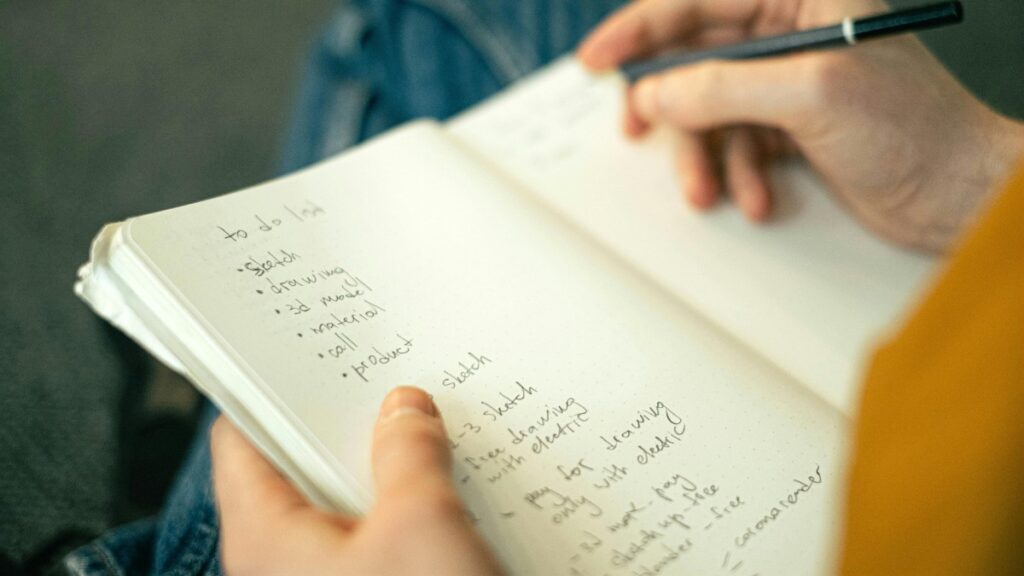 to do list
• sketch
• drawing
• 3d model
• material
• call
• product
sketch
2-3 sketch
- free drawing
with electric
- pay for drawing
only with electric
- 3d more - pay
sketch up - free
blender - free
- coronarender